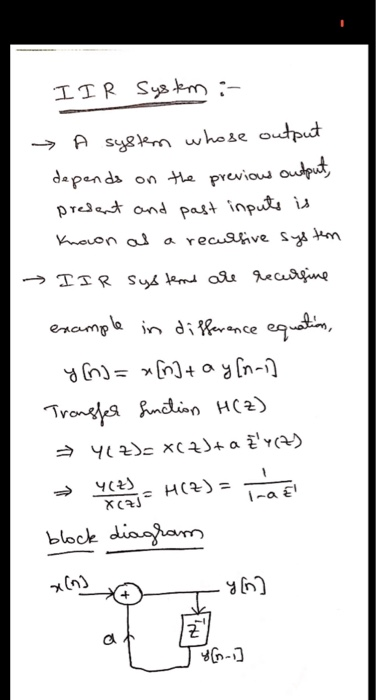 IIR System :-
→ A system whose output
depends on the previous output,
present and past inputs is
known as a recursive system
→ IIR systems are recursive
example in difference equation,
y[n] = x[n] + a y[n-1]
Transfer function H(z)
⇒ Y(z) = X(z) + a z⁻¹ Y(z)
⇒ Y(z)/X(z) = H(z) = 1/(1-a z⁻¹)
block diagram
x[n] + y[n]
a z⁻¹
y[n-1]